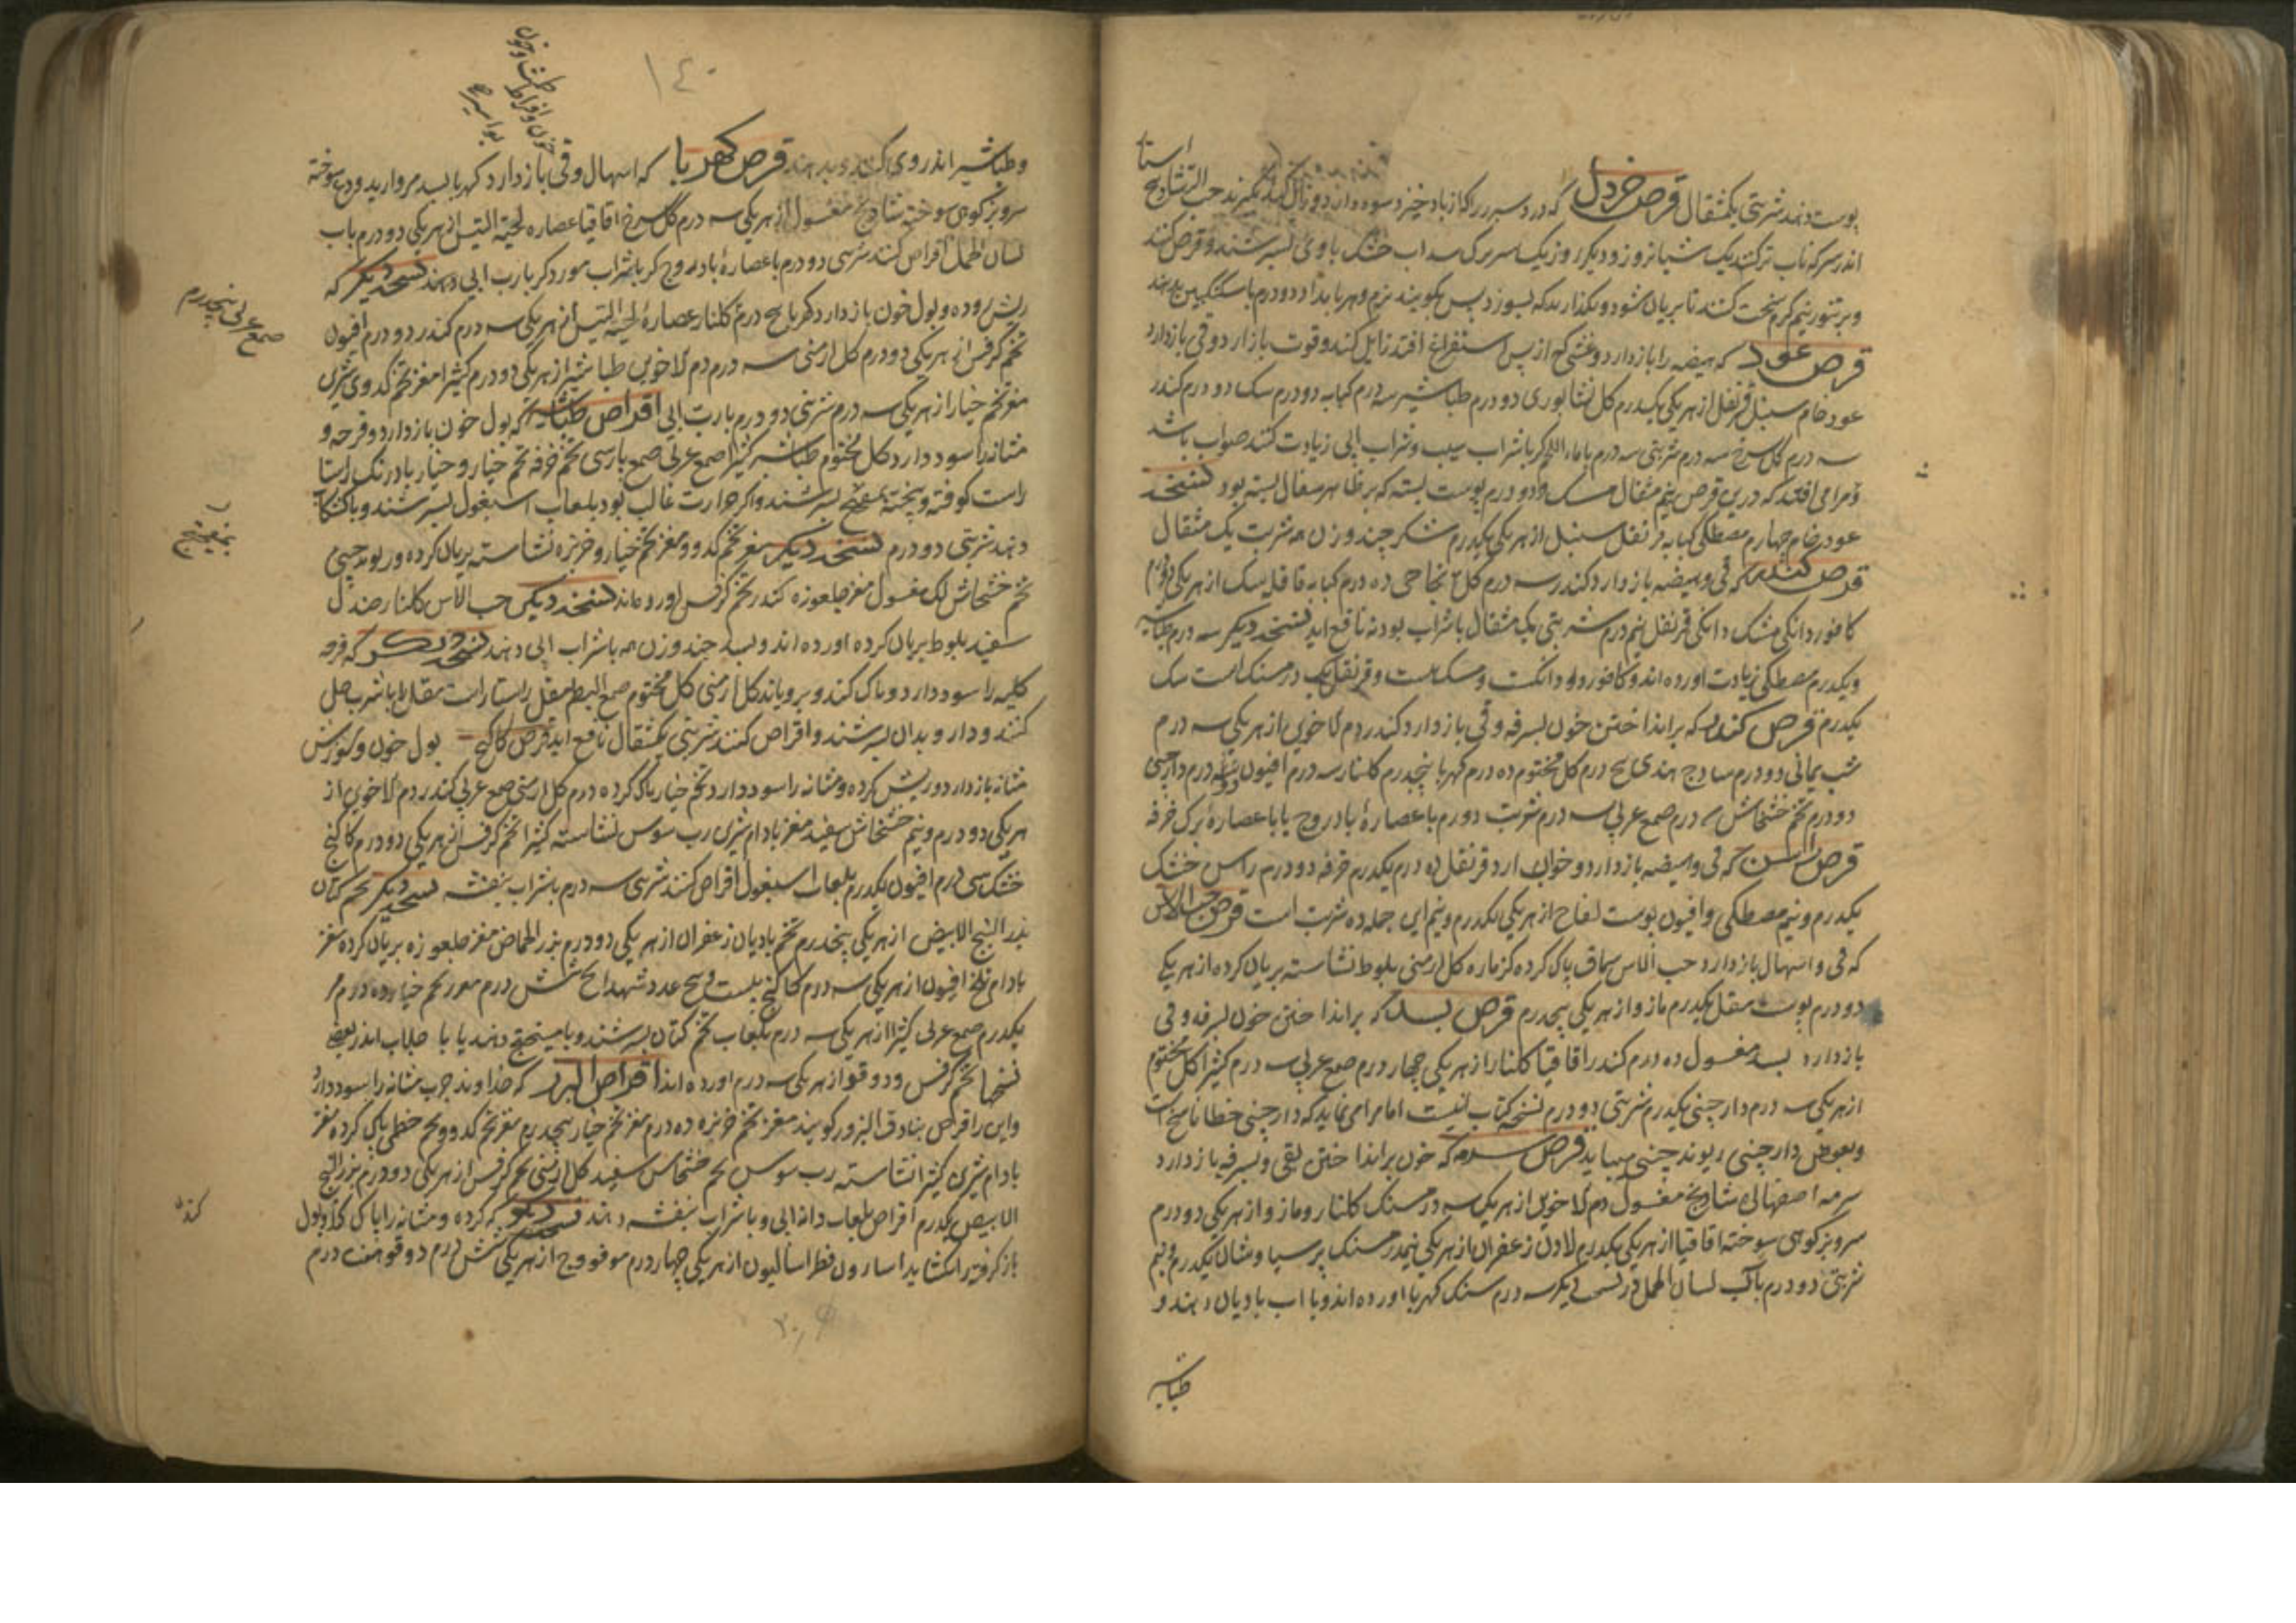 پوست دهند شربتی یکمثقال قرص خردل که درد سپرز را که از باد خیزد سود دارد و زائل کند بگیرند حب
اندر سرکه ناب تر کنند یک شبانروز و دیگر روز یک سر برک سداب خشک با وی بسرشند و قرص کنند
و بر تنور نیم کرم سخت کنند تا بریان شود و نگذارند که بسوزد پس بکوبند نرم و هر بامداد دو درم با سکنگبین بدهند
قرص عود که هیضه را بازدارد و غشی که از پس استفراغ افتد زایل کند و قوت بازآرد و قی بازدارد
عود خام سنبل قرنفل از هریکی یکدرم کل نشابوری دو درم طباشیر سه درم کبابه دو درم سک دو درم کندر
سه درم کل سرخ سه درم شربتی سه درم با ماء اللحم کر با شراب سیب و شراب ابی زیادت کنند صواب باشد
و مرا می افتد که درین قرص نیم مثقال مسک و دو درم پوست پسته که بر ظاهر سفال پسته بود نسخه
عود خام چهار درم مصطکی کبابه قرنفل سنبل از هریکی یکدرم شکر چند وزن همه شربت یک مثقال
قرص کندر که قی و هیضه بازدارد کندر سه درم کل نجاحی ده درم کبابه قاقله سک از هریکی دو درم
کافور دانکی مشک دانکی قرنفل نیم درم شربتی یک مثقال با شراب بودنه نافع اید نسخه دیکر سه درم طباشیر
و یکدرم مصطکی زیادت اورده اند و کافور دو دانکست و مسک نیست و قرنفل یک درمسنک است سک
یکدرم قرص کندر که برانداختن خون بسرفه و قی بازدارد کندر دم الاخوین از هریکی سه درم
شب یمانی دو درم سادج هندی پنج درم کل مختوم ده درم کهربا پنجدرم کلنار سه درم افیون سه درم دارچینی
دو درم تخم خشخاش درم صمغ عربی سه درم شربت دو درم با عصارهٔ بادروج یا با عصارهٔ برک خرفه
قرص راسن که قی و هیضه بازدارد و خواب ارد قرنفل ده درم یکدرم خرفه دو درم راسن خشک
یکدرم و نیم مصطکی و افیون پوست لفاح از هریکی یکدرم و نیم این جمله ده شربت است قرص حب الاس
که قی و اسهال بازدارد حب الاس سماق پاک کرده کزمازه کل ارمنی بلوط نشاسته بریان کرده از هریکی
دو درم پوست مقل یکدرم مازو از هریکی پنجدرم قرص بسد که برانداختن خون بسرفه و قی
بازدارد بسد مغسول ده درم کندر اقاقیا کلنار از هریکی چهار درم صمغ عربی سه درم کثیرا کل مختوم
از هریکی سه درم دارچینی یکدرم شربتی دو درم نسخه کتاب اینست اما مرا می نماید که دارچینی خطا ناسخ است
و بعوض دارچینی ریوند چینی میباید قرص سرمه که خون برانداختن بقی و بسرفه بازدارد
سرمه اصفهانی شادنج مغسول دم الاخوین از هریکی سه درمسنک کلنار و مازو از هریکی دو درم
سرو بز کوهی سوخته اقاقیا از هریکی یکدرم لادن زعفران از هریکی نیمدرمسنک پرسیاوشان یکدرم و نیم
شربتی دو درم با آب لسان الحمل و در نسخه دیکر سه درم سنک کهربا اورده اند و با اب بادیان دهند و
طباشیر
۱٤۰
و طباشیر اندر وی کنند و بدهند قرص کهربا که اسهال و قی بازدارد کهربا بسد مروارید ودع سوخته
سرو بز کوهی سوخته شادنج مغسول از هریکی سه درم کل سرخ اقاقیا عصاره لحیة التیس از هریکی دو درم باب
لسان الحمل اقراص کنند شربتی دو درم با عصارهٔ بادروج کر با شراب مورد کر با رب ابی دهند نسخه دیکر که
ریش روده و بول خون بازدارد کهربا پنج درم کلنار عصارهٔ لحیة التیس از هریکی سه درم کندر دو درم افیون
تخم کرفس از هریکی دو درم کل ارمنی سه درم دم الاخوین طباشیر از هریکی دو درم کثیرا مغز تخم کدوی شیرین
مغز تخم خیار از هریکی سه درم شربتی دو درم با رب ابی اقراص طباشیر که بول خون بازدارد و قرحه و
مثانه را سود دارد کل مختوم طباشیر کثیرا صمغ عربی صمغ پارسی تخم خرفه تخم خیار و خیار بادرنک راستا
راست کوفته و بپخته بسرشند و اکر حرارت غالب بود بلعاب اسبغول بسرشند و با کشکاب
دهند شربتی دو درم نسخه دیکر مغز تخم کدو و مغز تخم خیار و خربزه نشاسته بریان کرده و ریوند چینی
تخم خشخاش لک مغسول مغز جلغوزه کندر تخم کرفس اورده اند نسخه دیکر حب الاس کلنار صندل
سفید بلوط بریان کرده اورده اند و بسد چند وزن همه با شراب ابی دهند نسخه دیکر که قرحه
کلیه را سود دارد و پاک کند و برویاند کل ارمنی کل مختوم صمغ البطم مقل راستا راست مقل را با شراب حل
کنند و دارو بدان بسرشند و اقراص کنند شربتی یکمثقال نافع اید قرص کاکنج بول خون و سوزش
مثانه بازدارد و ریش کرده و مثانه را سود دارد تخم خیار پاک کرده ده درم کل ارمنی صمغ عربی کندر دم الاخوین از
هریکی دو درم و نیم خشخاش سفید مغز بادام شیرین رب سوس نشاسته کثیرا تخم کرفس از هریکی دو درم کاکنج
خشک سی درم افیون یکدرم بلعاب اسبغول اقراص کنند شربتی سه درم با شراب بنفشه نسخه دیکر تخم کتان
بزر البنج الابیض از هریکی پنجدرم تخم بادیان زعفران از هریکی دو درم بزر الحماض مغز جلغوزه بریان کرده مغز
بادام تلخ افیون از هریکی سه درم کاکنج بیست و پنج عدد شهدانج شش درم مغز تخم خیار ده درم
یکدرم صمغ عربی کثیرا از هریکی سه درم بلعاب تخم کتان بسرشند و با میبختج دهند یا با جلاب اندر بعضی
نسخها تخم کرفس و دوقو از هریکی سه درم اورده اند اقراص البزور که خداوند جرب مثانه را سود دارد
و این را قرص بنادق البزور کویند مغز تخم خربزه ده درم مغز تخم خیار پنجدرم مغز تخم کدو و تخم خطمی پاک کرده مغز
بادام شیرین کثیرا نشاسته رب سوس تخم خشخاش سفید کل ارمنی تخم کرفس از هریکی دو درم بزر البنج
الابیض یکدرم اقراص بلعاب دانه ابی و با شراب بنفشه دهند نسخه دیکر که کرده و مثانه را پاک کند و بول
باز کرفته را بکشاید اسارون فطراسالیون از هریکی چهار درم مو فو وج از هریکی شش درم دوقو هفت درم
صمغ عربی پنجدرم